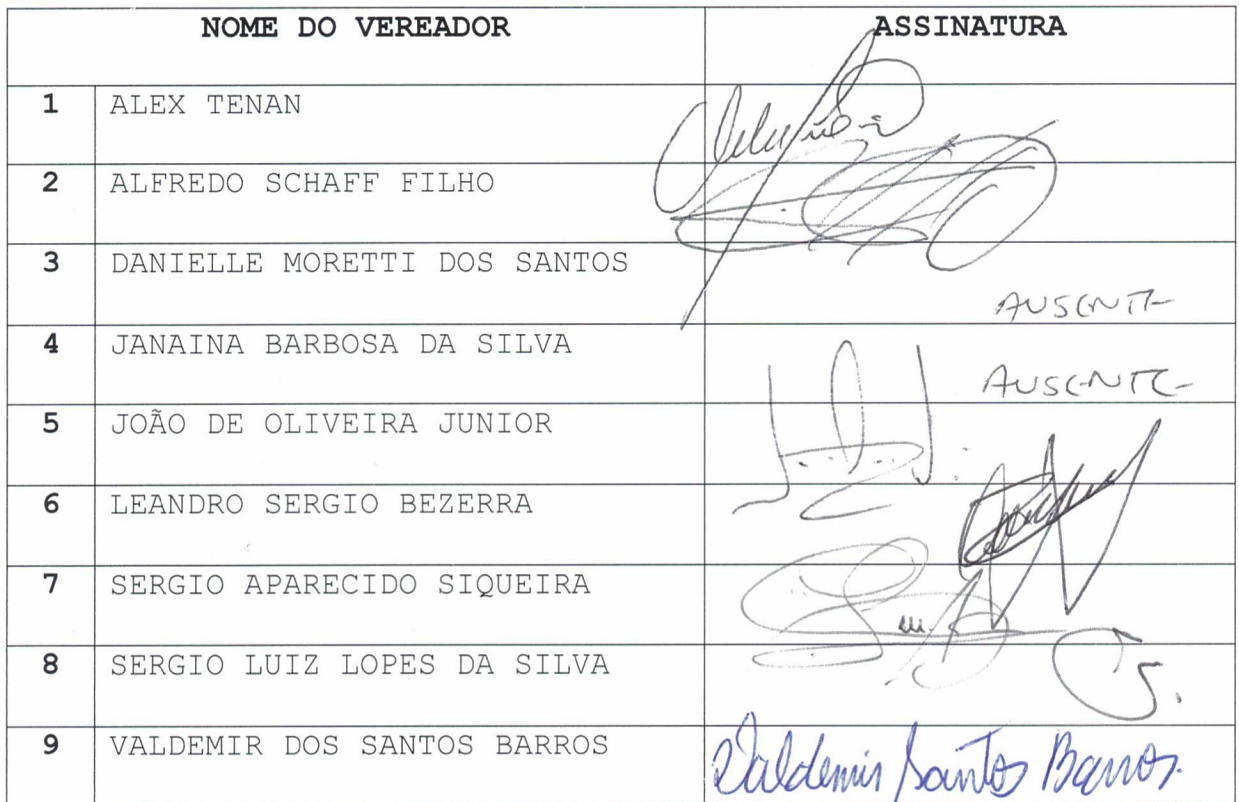 NOME DO VEREADOR ASSINATURA
1 ALEX TENAN
2 ALFREDO SCHAFF FILHO
3 DANIELLE MORETTI DOS SANTOS AUSENTE
4 JANAINA BARBOSA DA SILVA AUSENTE
5 JOÃO DE OLIVEIRA JUNIOR
6 LEANDRO SERGIO BEZERRA
7 SERGIO APARECIDO SIQUEIRA
8 SERGIO LUIZ LOPES DA SILVA
9 VALDEMIR DOS SANTOS BARROS Valdemir Santos Barros.